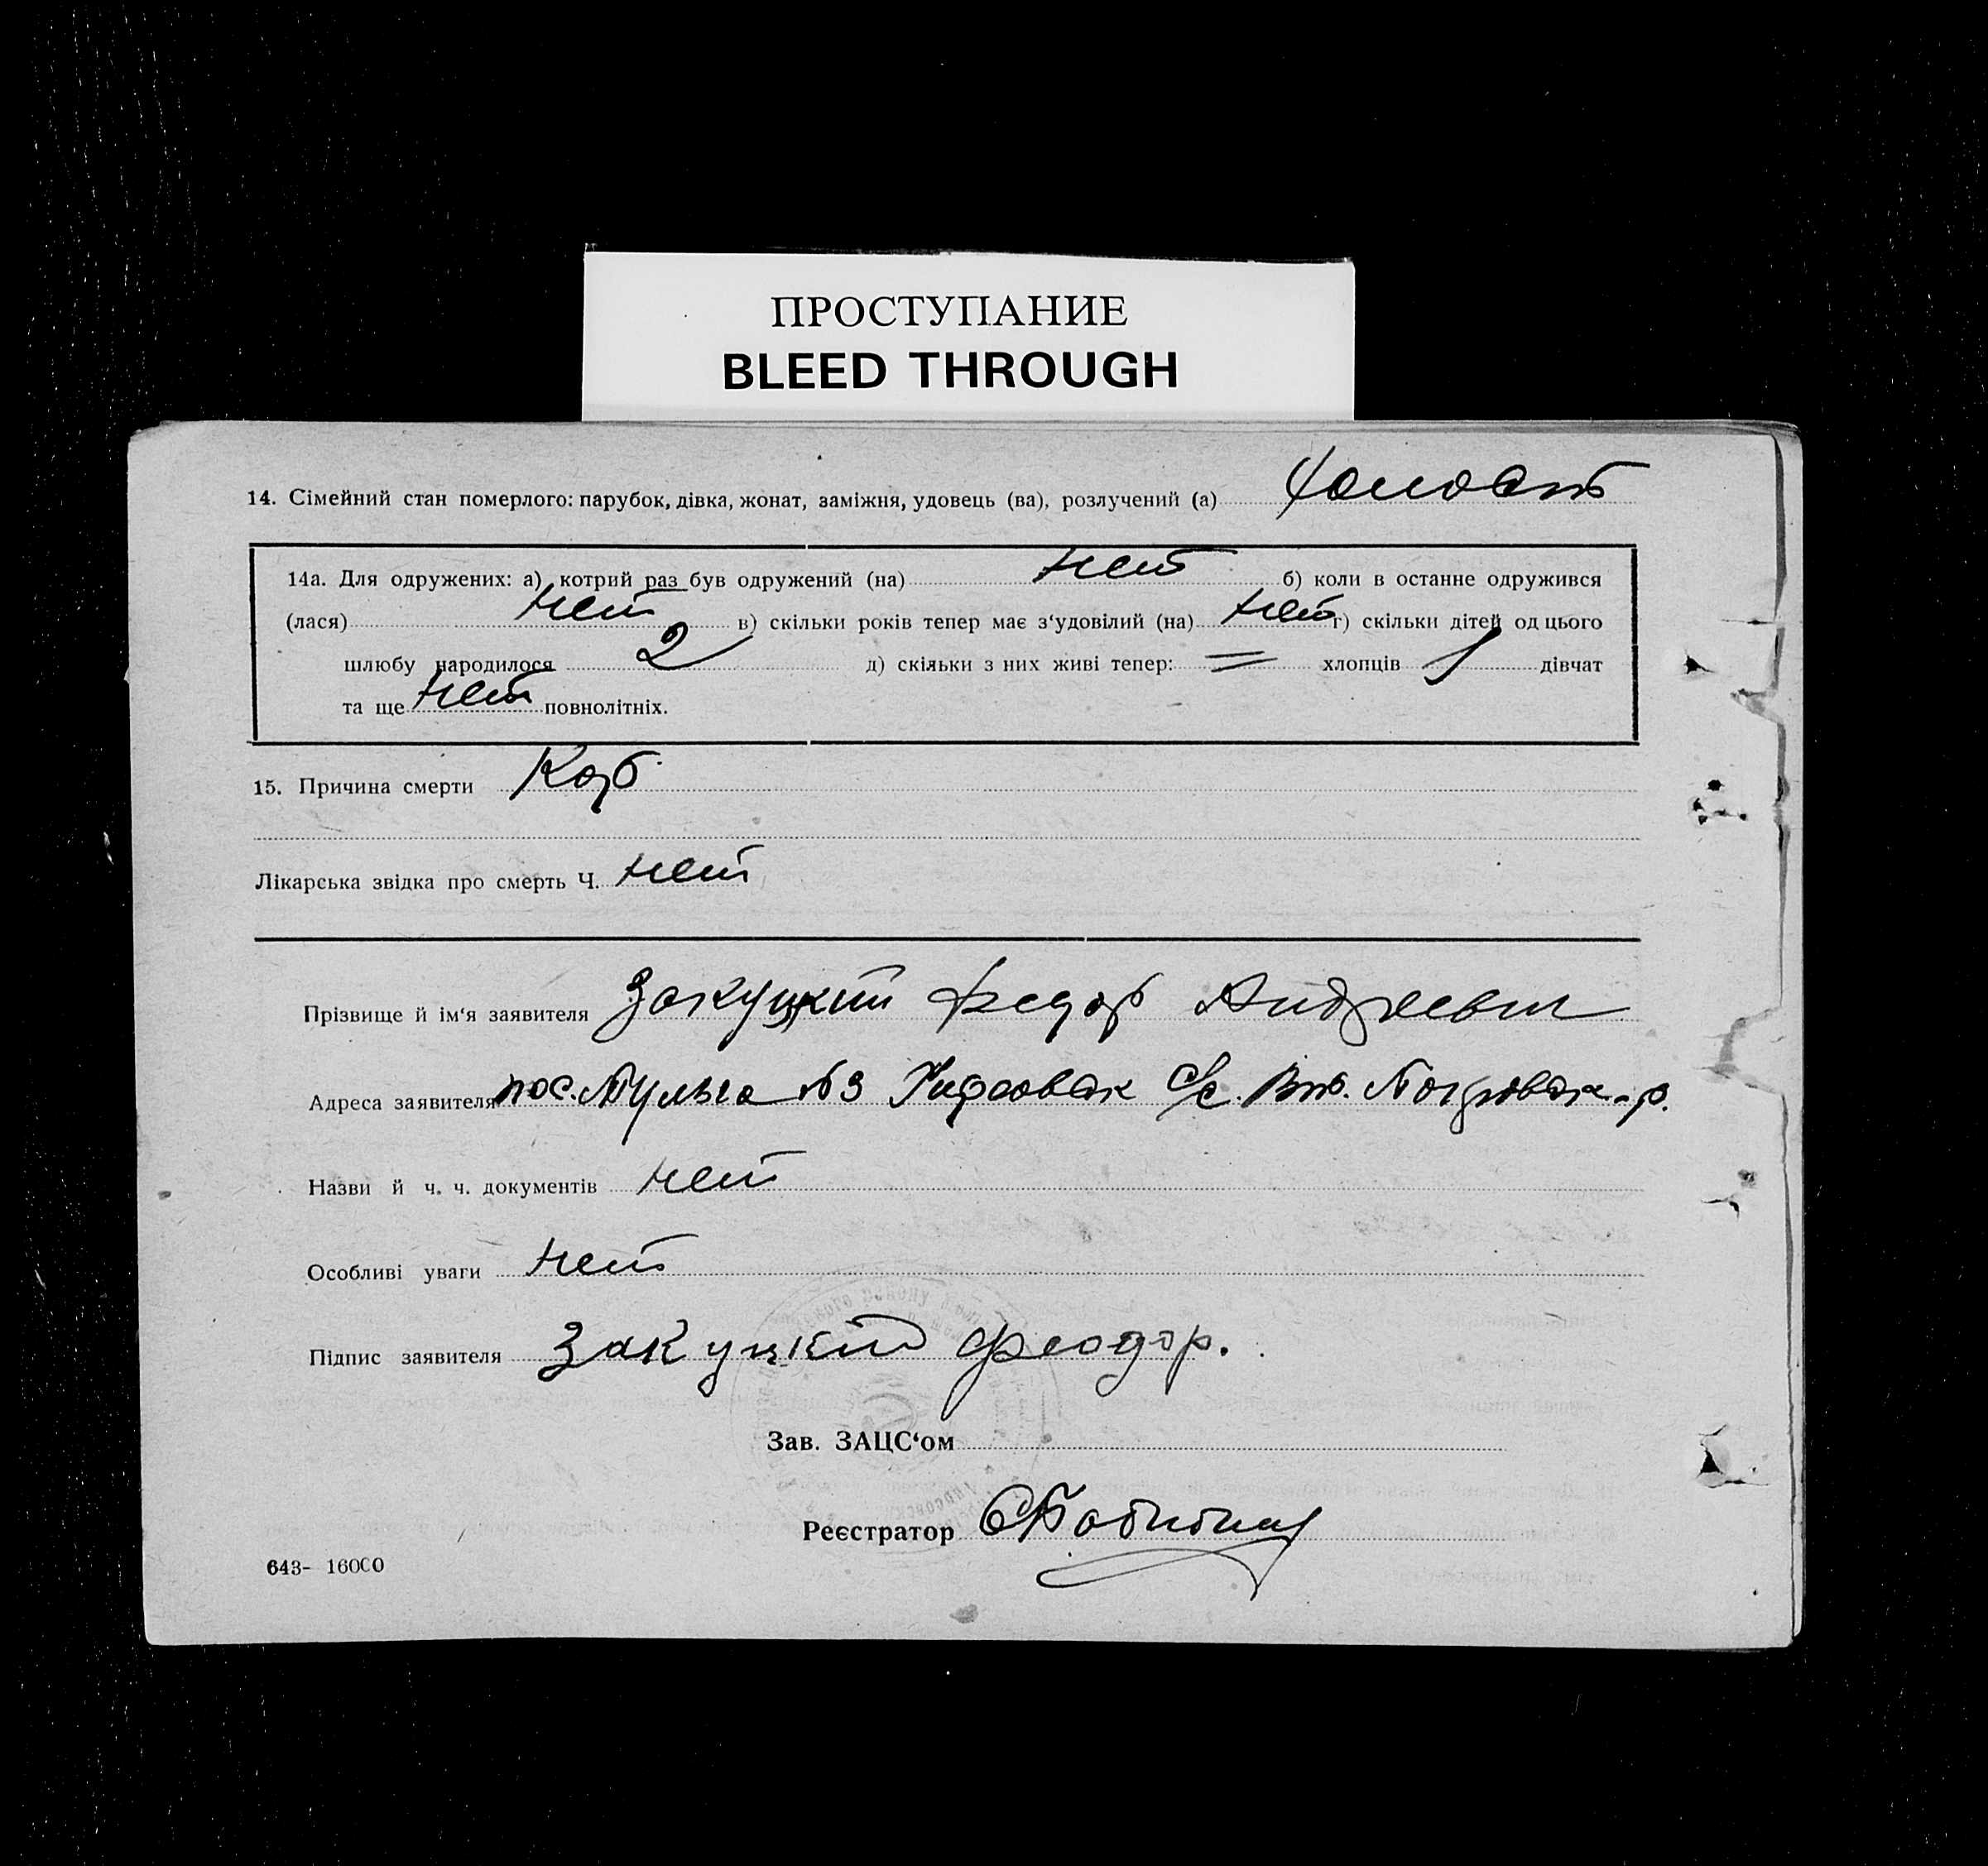 ПРОСТУПАНИЕ
BLEED THROUGH
14. Сімейний стан померлого: парубок, дівка, жонат, заміжня, удовець (ва), розлучений (а) холост
14а. Для одружених: а) котрий раз був одружений (на) нет б) коли в останнє одружився
(лася) нет в) скільки років тепер має з‘удовілий (на) нет г) скільки дітей од цього
шлюбу народилося 2 д) скільки з них живі тепер: = хлопців 1 дівчат
та ще нет повнолітніх.
15. Причина смерти Кор
Лікарська звідка про смерть Ч. нет
Прізвище й ім‘я заявителя Закуцкий Федор Андреевич
Адреса заявителя пос. №3 с/с. Покровск. р.
Назви й ч. ч. документів нет
Особливі уваги нет
Підпис заявителя Закуцкий Феодор.
Зав. ЗАЦС‘ом
Реєстратор
643- 16000